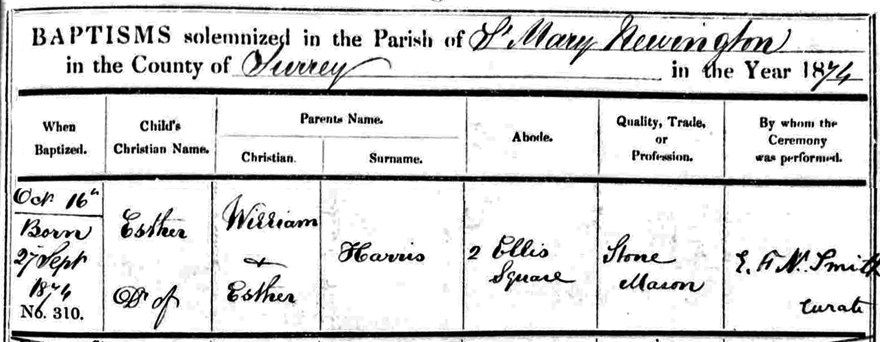 BAPTISMS solemnized in the Parish of St Mary Newington
in the County of Surrey in the Year 1874
When Baptized.
Child's Christian Name.
Parents Name.
Christian.
Surname.
Abode.
Quality, Trade, or Profession.
By whom the Ceremony was performed.
Oct 16th
Born
27 Sept
1874
No. 310.
Esther
Dr of
William
&
Esther
Harris
2 Ellis
Square
Stone
Mason
E. F. N. Smith
Curate